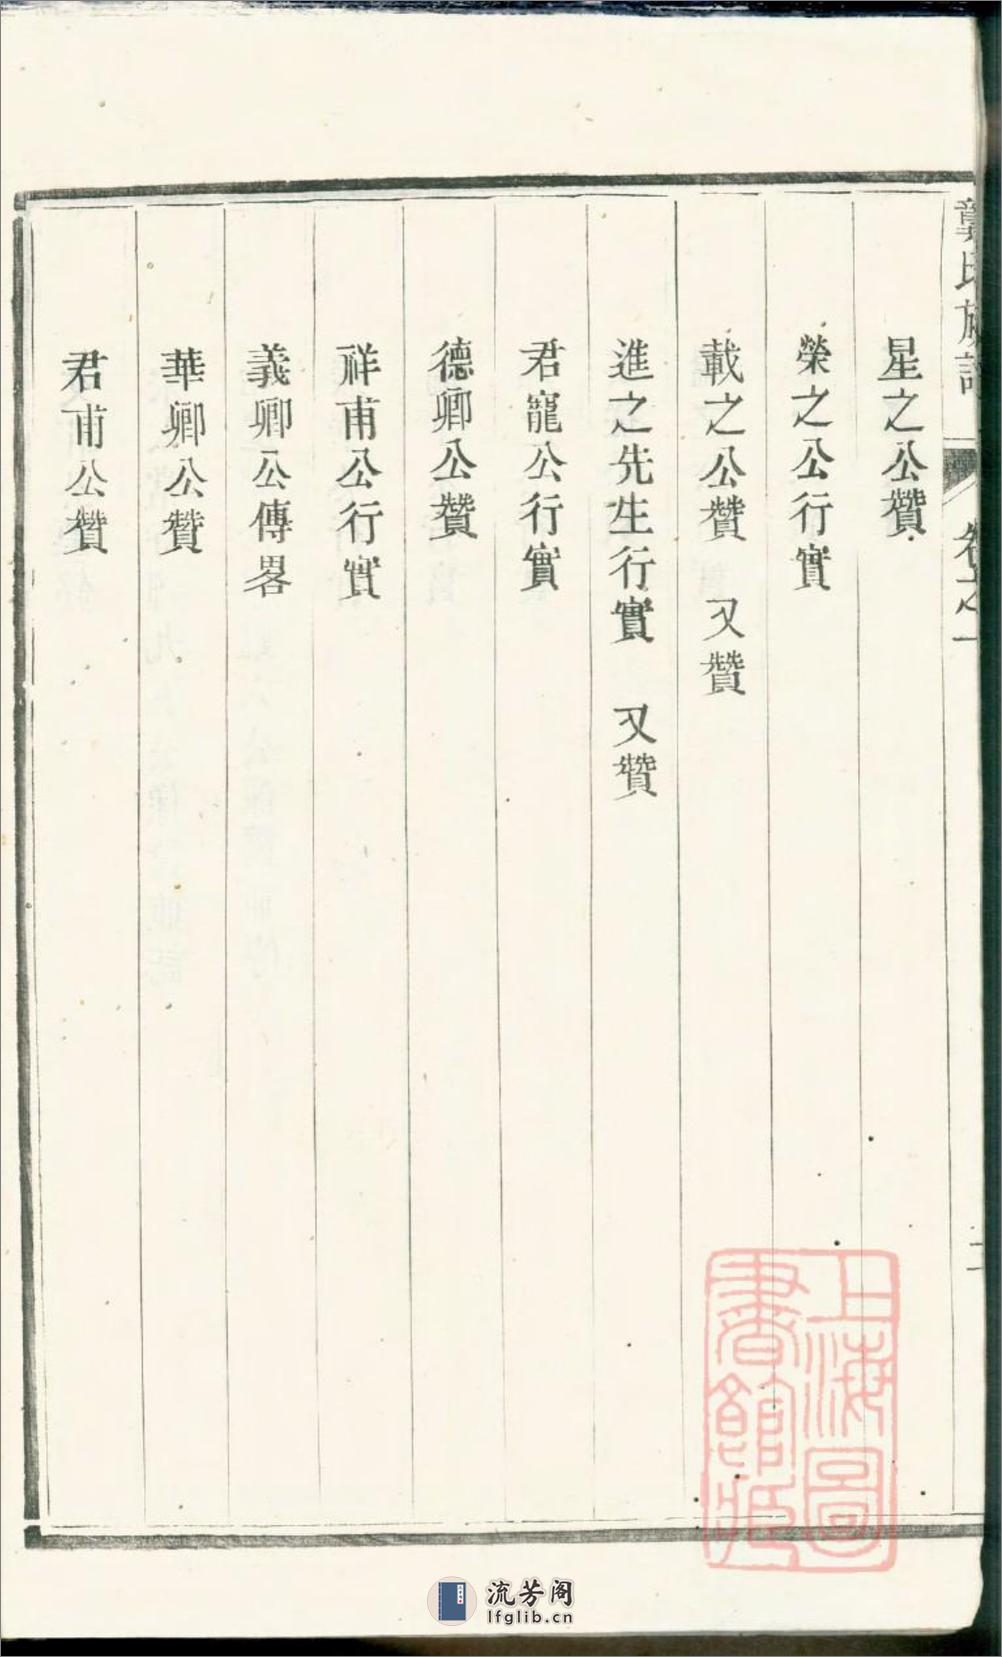 龔氏族譜
卷之一
二
星之公贊
榮之公行實
載之公贊 又贊
進之先生行實 又贊
君寵公行實
德卿公贊
祥甫公行實
義卿公傳畧
華卿公贊
君甫公贊
上海圖
書館藏
流芳阁
lfglib.cn